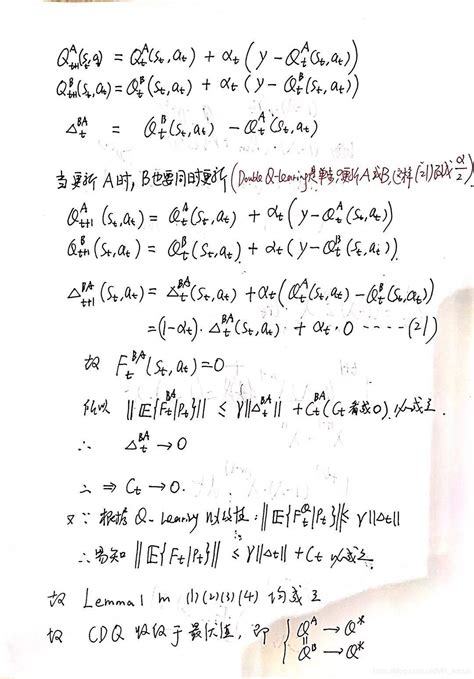 Q^A_{t+1}(s_t,a_t) = Q^A_t(s_t,a_t) + α_t(y-Q^A_t(s_t,a_t))
Q^B_{t+1}(s_t,a_t) = Q^B_t(s_t,a_t) + α_t(y-Q^B_t(s_t,a_t))
Δ^{BA}_t = Q^B_t(s_t,a_t) - Q^A_t(s_t,a_t)
当更新A时, B也要同时更新 (Double Q-learning是 更新A或B, (21) α/2)
Q^A_{t+1}(s_t,a_t) = Q^A_t(s_t,a_t) + α_t(y-Q^A_t(s_t,a_t))
Q^B_{t+1}(s_t,a_t) = Q^B_t(s_t,a_t) + α_t(y-Q^B_t(s_t,a_t))
Δ^{BA}_{t+1}(s_t,a_t) = Δ^{BA}_t(s_t,a_t) + α_t(Q^A_t(s_t,a_t) - Q^B_t(s_t,a_t))
=(1-α_t)·Δ^{BA}_t(s_t,a_t) + α_t·0 -----(21)
故 F^{BA}_t(s_t,a_t)=0
所以 ||E{F^{BA}_t|P_t}|| ≤ γ||Δ^{BA}_t|| + C^{BA}_t (C_t 看成0) 成立
∴ Δ^{BA}_t → 0
∴ ⇒ C_t → 0.
又∵ 根据 Q-learning ||E{F^Q_t|P_t}|| ≤ γ||Δ_t||
∴易知 ||E{F_t|P_t}|| ≤ γ||Δ_t|| + C_t 成立
故 Lemma1 (1)(2)(3)(4) 均成立
故 CDQ 收敛于最优值, 即 { Q^A → Q*
Q^B → Q*